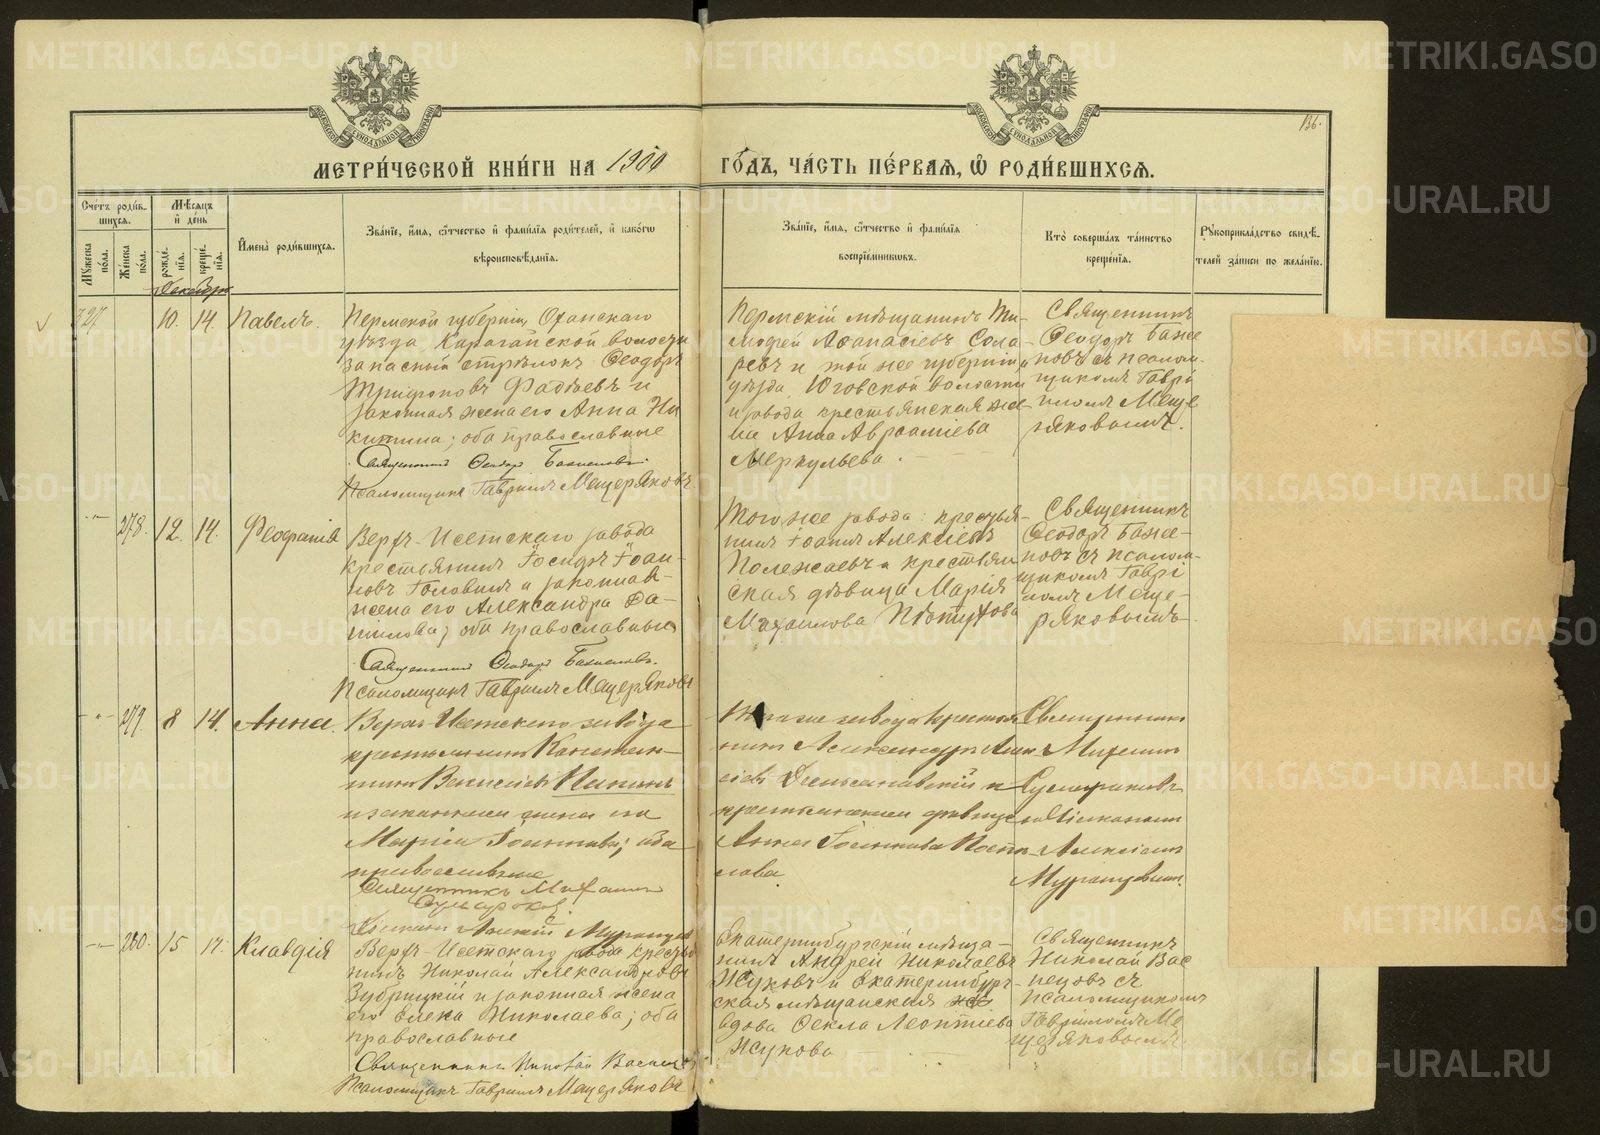 METRIKI.GASO-URAL.RU
136.
МЕТРИ́ЧЕСКОЙ КНИ́ГИ НА 1900 ГО́ДЪ, ЧА́СТЬ ПЕ́РВАЯ, Ѡ РОДИ́ВШИХСЯ.
Сче́тъ роди́вшихся.
Му́жеска по́ла.
Же́нска по́ла.
Мѣ́сяцъ и́ де́нь
рожде́нїя.
креще́нїя.
И҆мена̀ роди́вшихся.
Зва́нїе, и҆́мя, ѻ҆́тчество и҆ фамилїя роди́телей, и҆ како́гѡ вѣроисповѣ́данїя.
Зва́нїе, и҆́мя, ѻ҆́тчество и҆ фамилїя воспрїе́мникѡвъ.
Кто̀ соверша́лъ та́инство креще́нїя.
Рꙋкоприкла́дство свидѣ́телей за́писи по жела́нїю.
Декабрь
327 10. 14. Павелъ.
Пермской губерніи, Оханскаго
уѣзда, Карагайской волости
запасный стрѣлокъ Ѳеодоръ
Трифоновъ Фадѣевъ и
законная жена его Анна Ни
китина; оба православные
Священникъ Ѳеодоръ Баженовъ.
Псаломщикъ Гавріилъ Мещеряковъ
Пермскій мѣщанинъ Ти-
мофей Аѳанасіевъ Сола
ревъ и той же губерніи и
уѣзда, Юговской волости
и завода крестьянская же-
на Анна Авраамiева
Меркульева.
Священникъ
Ѳеодоръ Баже
новъ съ псалом-
щикомъ Гаврі
иломъ Меще
ряковымъ.
278. 12. 14. Феофанія
Верхъ-Исетскаго завода
крестьянинъ Іосифъ Іоан-
новъ Головинъ и законная
жена его Александра Да-
нилова; оба православные
Священникъ Ѳеодоръ Баженовъ.
Псаломщикъ Гавріилъ Мещеряковъ
Того же завода: крестья-
нинъ Іоаннъ Алексіевъ
Полежаевъ и крестьян
ская дѣвица Марія
Михаилова Пѣтухова
Священникъ
Ѳеодоръ Баже-
новъ съ псалом-
щикомъ Гаврі
иломъ Меще-
ряковымъ
279. 8 14. Анна.
Верхъ-Исетскаго завода
крестьянинъ Констан-
тинъ
и законная жена его
Марія Іоаннова; оба
православные
Священникъ Михаилъ
Сумароковъ
Діаконъ Алексій
Того же завода крестья
нинъ Александръ
и
крестьянская дѣвица
Анна Іоаннова
лова
Священникъ
Михаилъ
Сумароковъ
съ Діакономъ
Алексіемъ
280. 15 17. Клавдія
Верхъ-Исетскаго завода крестья
нинъ Николай Александровъ
Зубрицкій и законная жена
его Елена Николаева; оба
православные
Священникъ Николай
Псаломщикъ Гавріилъ Мещеряковъ
Екатеринбургскій мѣща-
нинъ Андрей Николаевъ
Жуковъ и Екатеринбург-
ская мѣщанская
вдова Ѳекла Леонтіева
Жукова
Священникъ
Николай Вас
нецовъ съ
псаломщикомъ
Гавріиломъ Ме
щеряковымъ